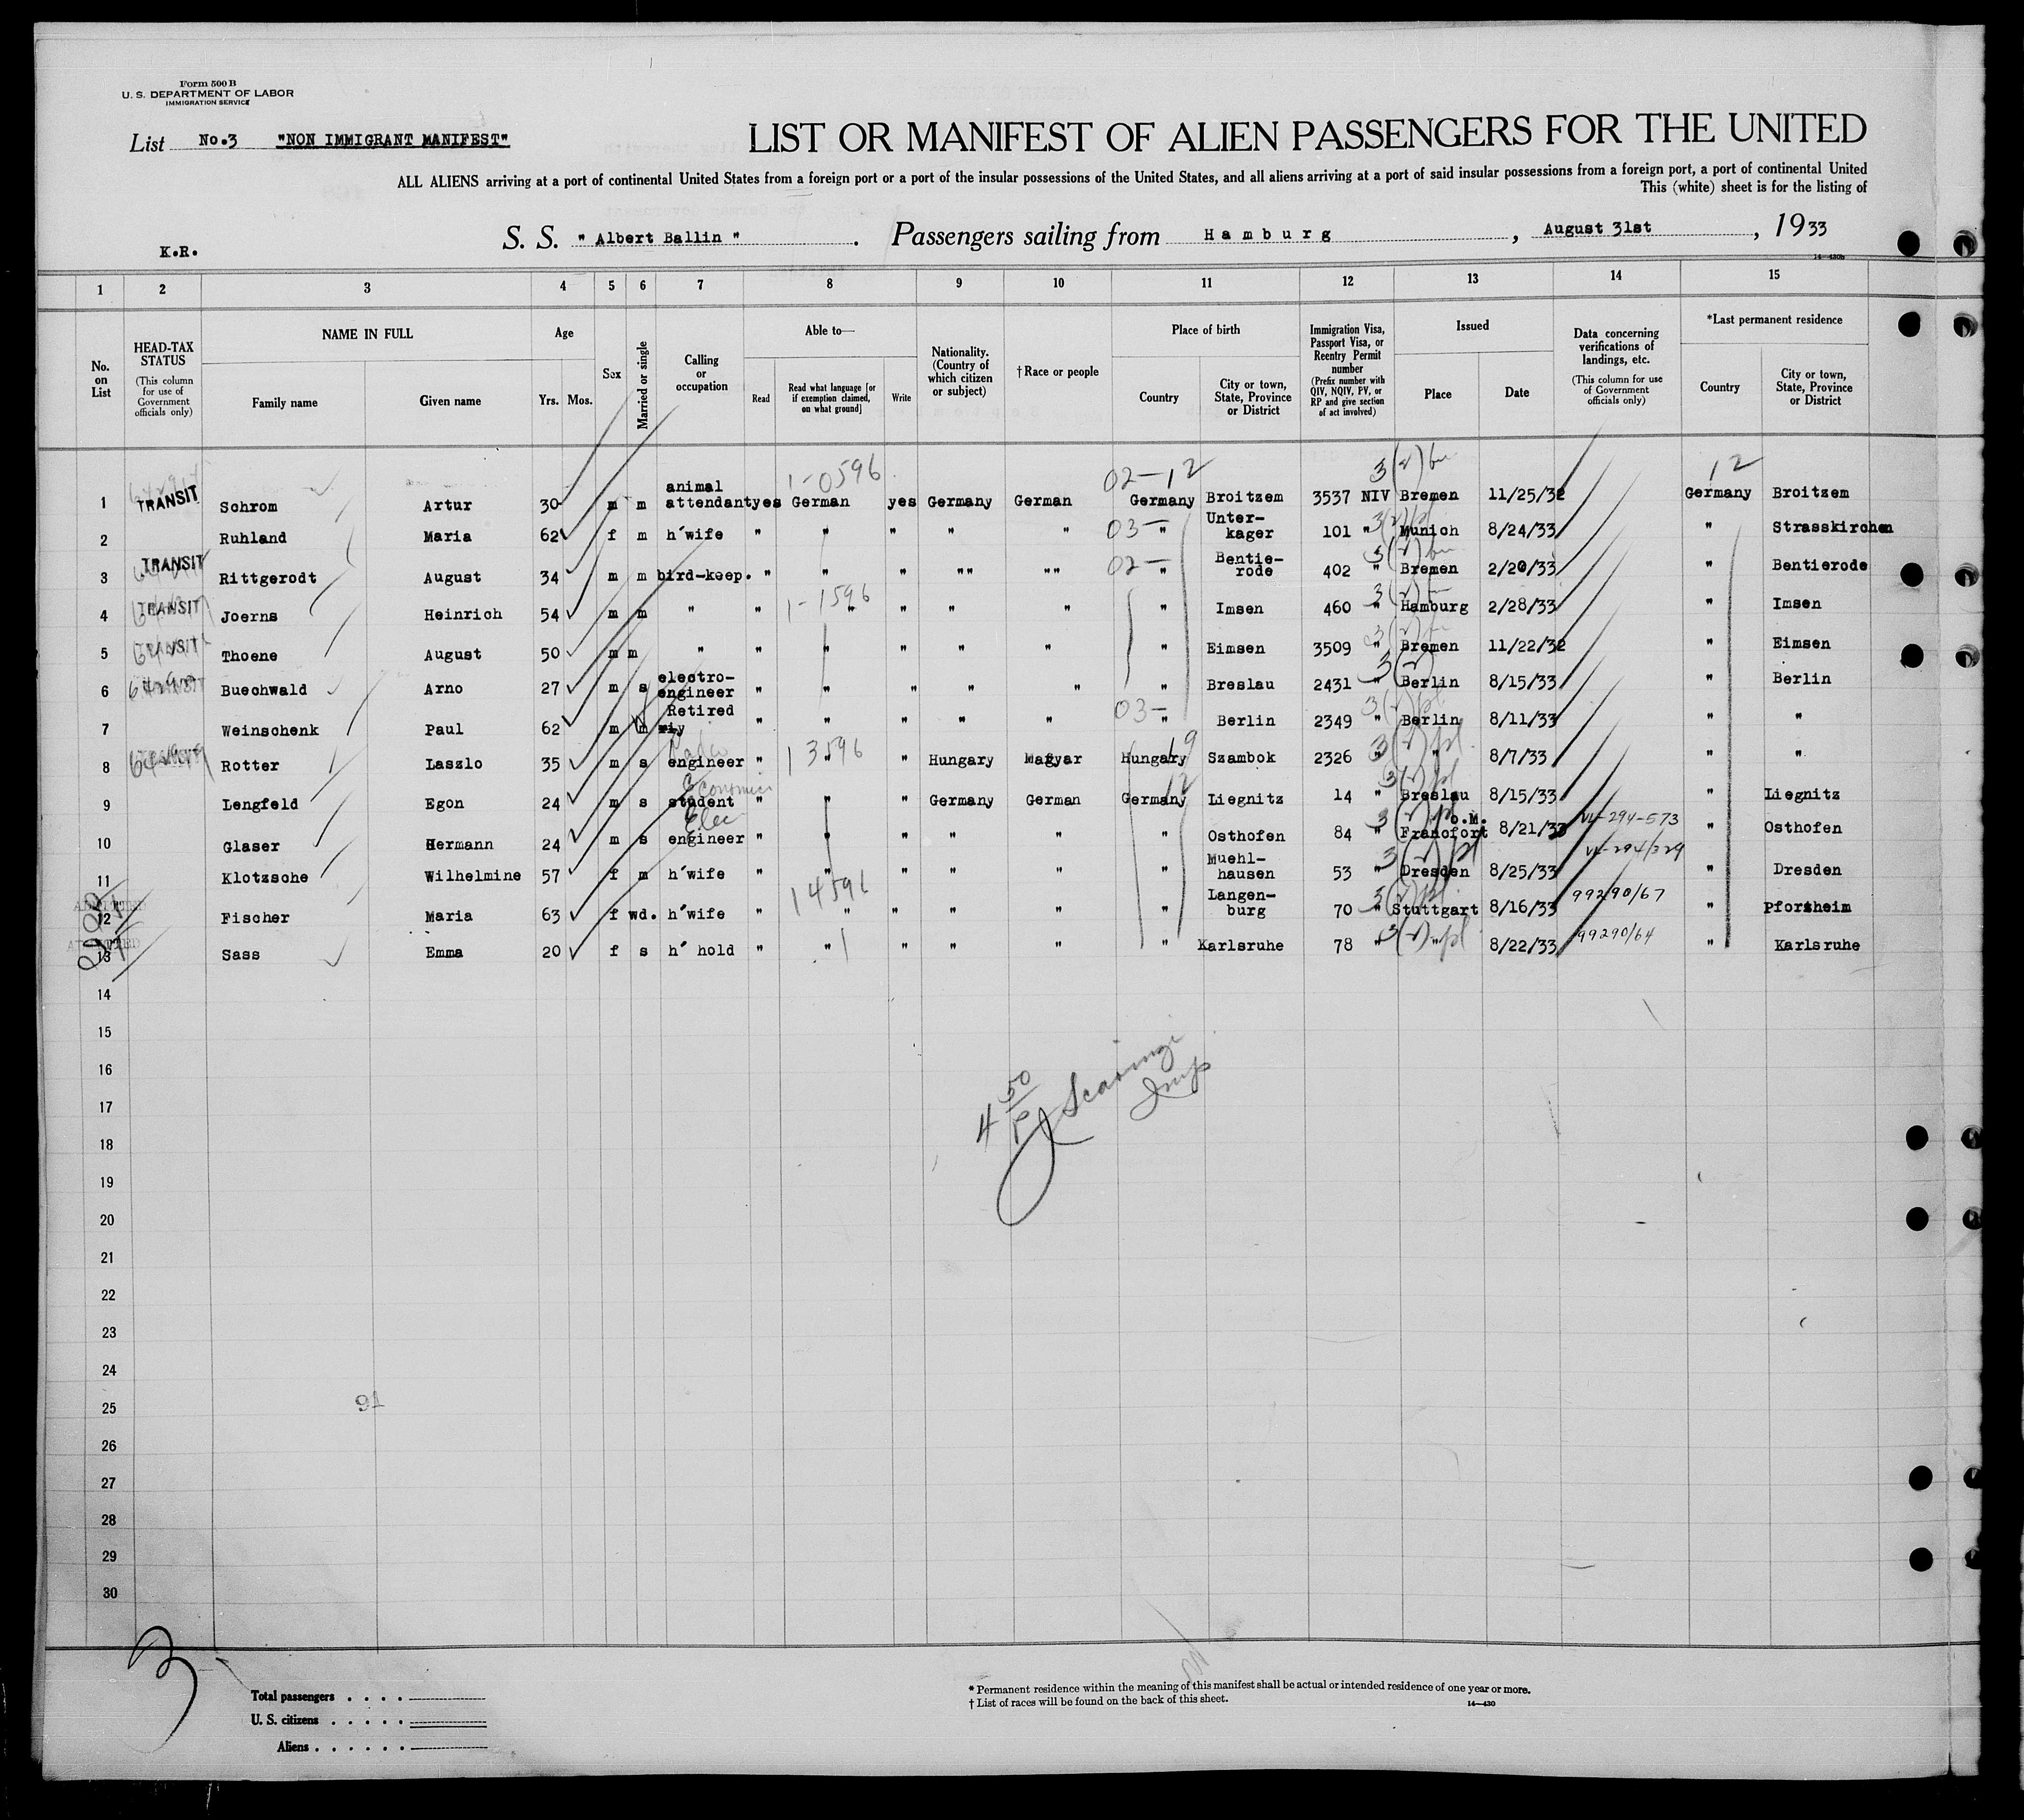 Form 500 B
U. S. DEPARTMENT OF LABOR
IMMIGRATION SERVICE
List No.3 "NON IMMIGRANT MANIFEST"
LIST OR MANIFEST OF ALIEN PASSENGERS FOR THE UNITED
ALL ALIENS arriving at a port of continental United States from a foreign port or a port of the insular possessions of the United States, and all aliens arriving at a port of said insular possessions from a foreign port, a port of continental United
This (white) sheet is for the listing of
K.R.
S. S. " Albert Ballin " . Passengers sailing from Hamburg , August 31st , 1933
14—430b
1 2 3 4 5 6 7 8 9 10 11 12 13 14 15
No. on List
HEAD-TAX STATUS
(This column for use of Government officials only)
NAME IN FULL
Family name
Given name
Age
Yrs. Mos.
Sex
Married or single
Calling or occupation
Able to—
Read
Read what language [or if exemption claimed, on what ground]
Write
Nationality. (Country of which citizen or subject)
† Race or people
Place of birth
Country
City or town, State, Province or District
Immigration Visa, Passport Visa, or Reentry Permit number
(Prefix number with QIV, NQIV, PV, or RP and give section of act involved)
Issued
Place
Date
Data concerning verifications of landings, etc.
(This column for use of Government officials only)
*Last permanent residence
Country
City or town, State, Province or District
1-0596 02-12 12
1 TRANSIT Schrom Artur 30 m m animal attendant yes German yes Germany German Germany Broitzem 3537 NIV Bremen 11/25/32 Germany Broitzem
2 Ruhland Maria 62 f m h'wife " " " " " 03- " Unter-kager 101 " Munich 8/24/33 " Strasskirchen
3 TRANSIT Rittgerodt August 34 m m bird-keep. " " " "" "" 02- " Bentie-rode 402 " Bremen 2/20/33 " Bentierode
4 TRANSIT Joerns Heinrich 54 m m " " 1-1596 " " " " " Imsen 460 " Hamburg 2/28/33 " Imsen
5 TRANSIT Thoene August 50 m m " " " " " " " Eimsen 3509 " Bremen 11/22/32 " Eimsen
6 Buechwald Arno 27 m s electro-engineer " " " " " " Breslau 2431 " Berlin 8/15/33 " Berlin
7 Weinschenk Paul 62 m m Retired " " " " " 03- " Berlin 2349 " Berlin 8/11/33 " "
8 Rotter Laszlo 35 m s engineer " 1 3596 " " Hungary Magyar Hungary 19 Szambok 2326 " " 8/7/33 " "
9 Lengfeld Egon 24 m s student " " " Germany German Germany 12 Liegnitz 14 " Breslau 8/15/33 " Liegnitz
10 Glaser Hermann 24 m s Elec engineer " " " " " " Osthofen 84 " Francfort o.M. 8/21/33 " Osthofen
11 Klotzsche Wilhelmine 57 f m h'wife " " " " " " Muehl-hausen 53 " Dresden 8/25/33 " Dresden
12 Fischer Maria 63 f wd. h'wife " 1 4596 " " " " " Langen-burg 70 " Stuttgart 8/16/33 99290/67 " Pforzheim
13 Sass Emma 20 f s h' hold " " " " " " Karlsruhe 78 " " 8/22/33 99290/64 " Karlsruhe
14
15
16
17
18
19
20
21
22
23
24
25
26
27
28
29
30
4 50
91
3
Total passengers
U. S. citizens
Aliens
* Permanent residence within the meaning of this manifest shall be actual or intended residence of one year or more.
† List of races will be found on the back of this sheet.
14—430